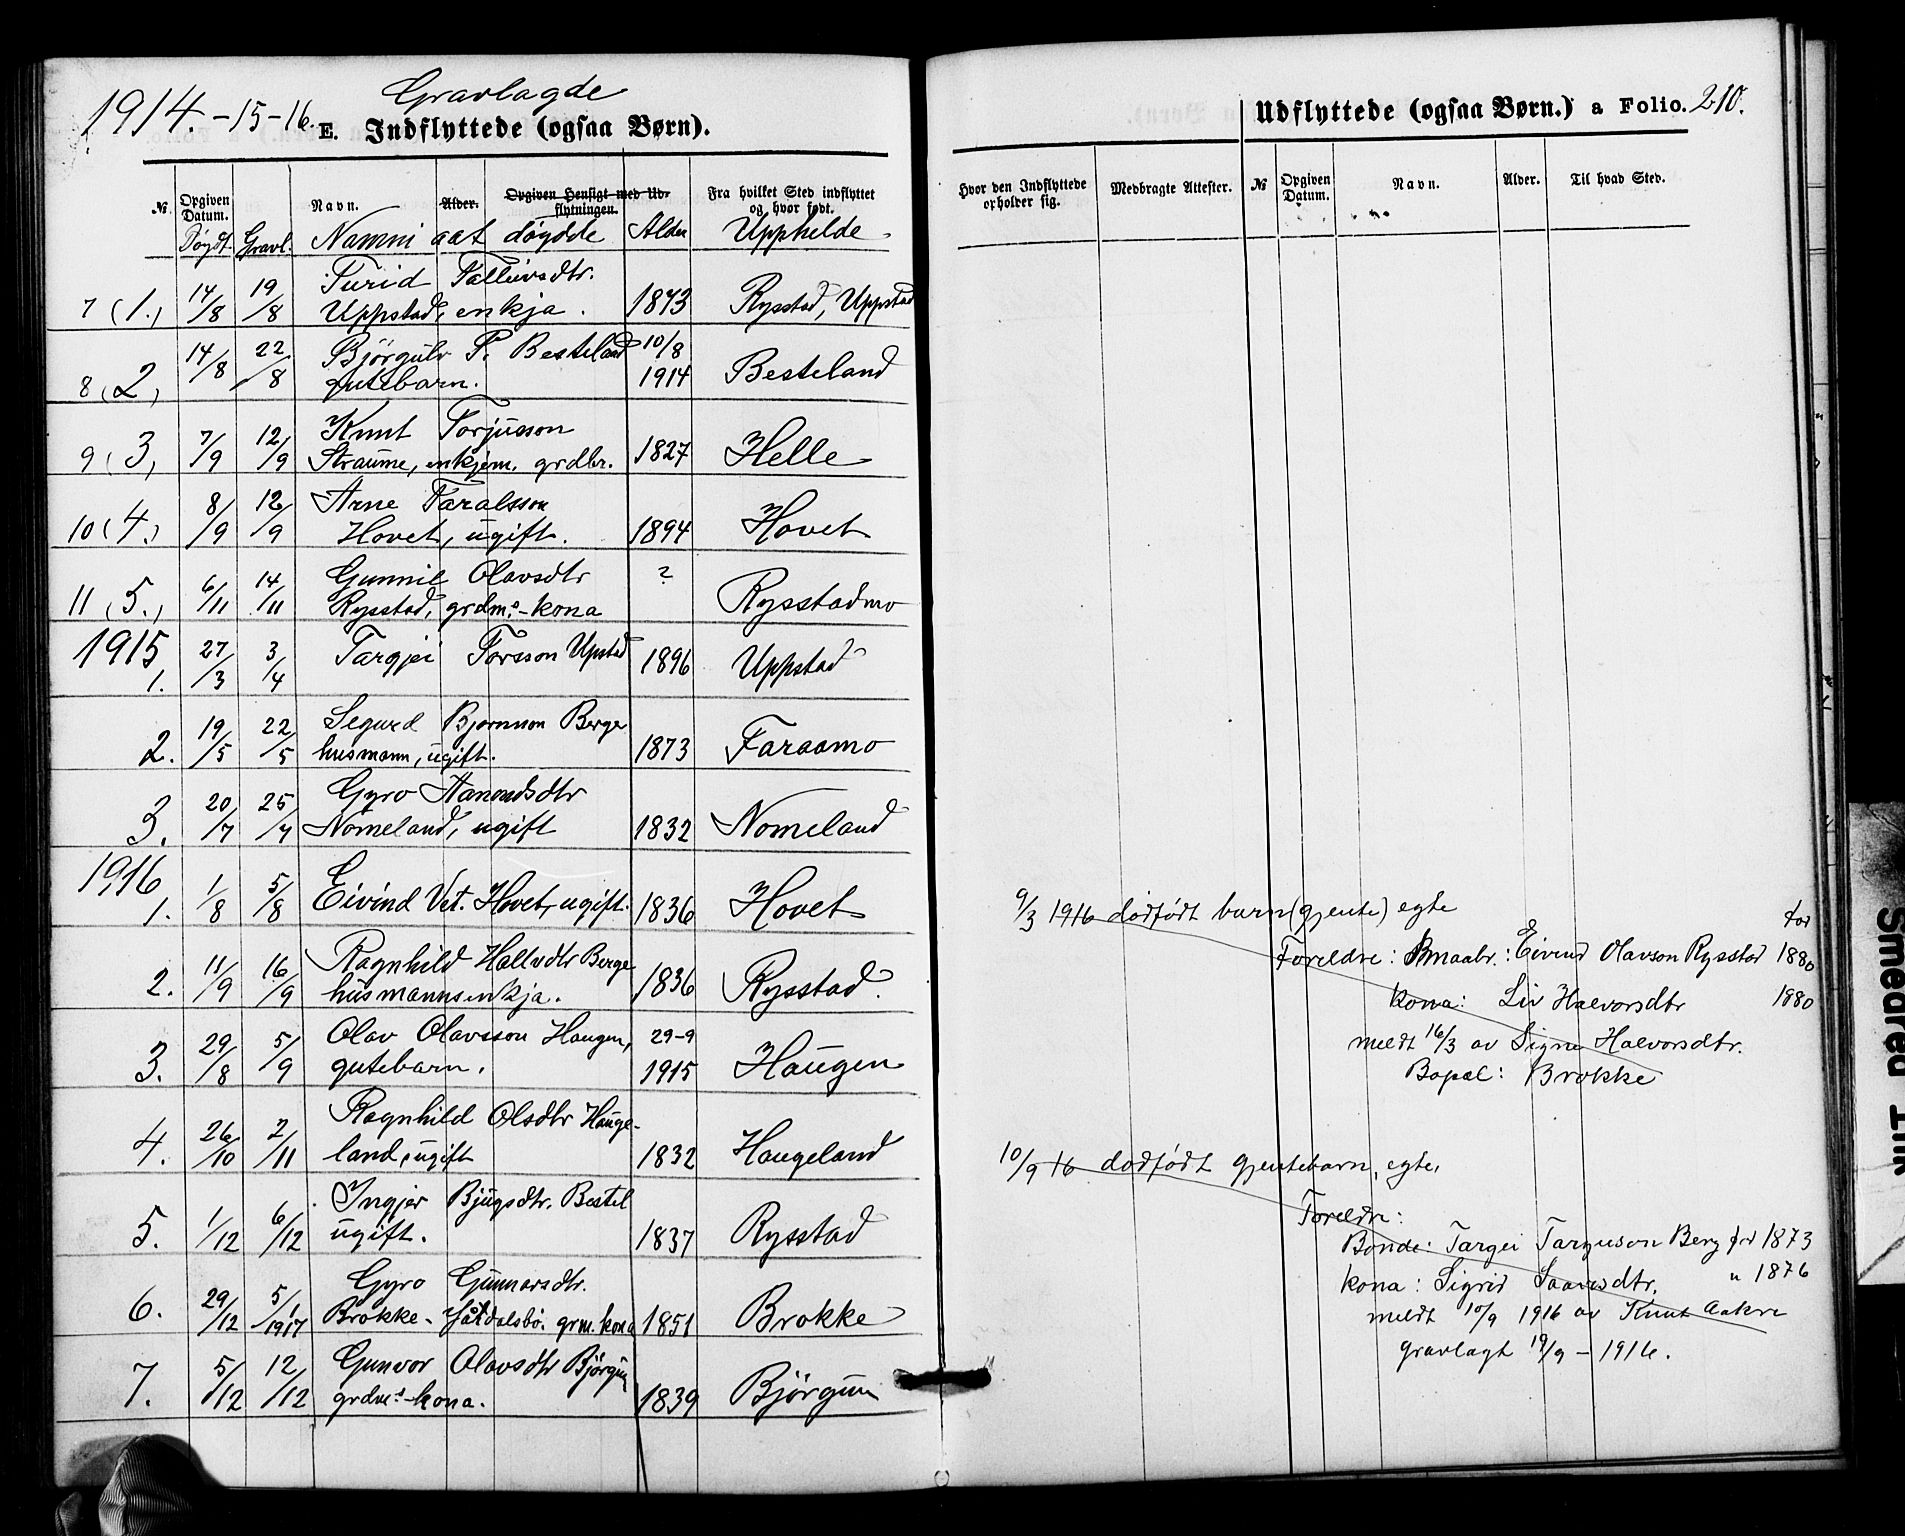 1914.-15-16.
Gravlagde
E. Indflyttede (ogsaa Børn).
№. Opgiven Datum. Navn. Alder. Opgiven Hensigt med Udflytningen. Fra hvilket Sted indflyttet og hvor født.
Döydt. Gravl. Namni aat döydde Alder Upphelde
7 (1.) 14/8 19/8 Turid Talleivsdtr.
Uppstad, enkja. 1843 Rysstad, Uppstad
8 (2) 14/8 22/8 Björgulv T. Besteland 10/8
gutebarn. 1914 Besteland
9 (3) 7/9 12/9 Knut Torjusson
Straume, enkjem. grdbr. 1827 Helle
10 (4.) 8/9 12/9 Arne Taralsson
Hovet, ugift. 1894 Hovet
11 (5.) 6/11 14/11 Gunnil Olavsdtr ?
Rysstad, grdm.s-kona Rysstadmo
1915
1. 27/3 3/4 Targjei Torsson Upstad 1896 Uppstad
2. 19/5 22/5 Segurd Bjornson Berge
husmann, ugift. 1873 Faraamo
3. 20/7 25/7 Gyro Aanondsdtr
Nomeland, ugift 1832 Nomeland
1916
1. 1/8 5/8 Eivind Vet. Hovet, ugift. 1836 Hovet
2. 11/9 16/9 Ragnhild Hallvdtr Berge
husmannsenkja. 1836 Rysstad.
3. 29/8 5/9 Olav Olavsson Haugen, 29-9
gutebarn. 1915 Haugen
4. 26/10 2/11 Ragnhild Olsdtr Hauge-
land, ugift 1832 Haugeland
5. 1/12 6/12 Ingjer Bjugsdtr. Bestel
ugift. 1837 Rysstad
6. 29/12 5/1 1917 Gyro Gunnarsdtr.
Brokke - grm. kona 1851 Brokke
7. 5/12 12/12 Gunvor Olavsdtr Björgum
grdm.s-kona. 1839 Björgum
Udflyttede (ogsaa Børn.) a Folio. 210.
Hvor den Indflyttede opholder sig. Medbragte Attester. № Opgiven Datum. Navn. Alder. Til hvad Sted.
9/3 1916 dödfödt barn (gjente) egte
Foreldre: Eivind Olavson Rysstad 1880
kona: Liv Halvorsdtr 1880
meldt 16/3 av Signe Halvorsdtr.
Bopæl: Brokke
10/9 16 dödfödt gjentebarn, egte,
Foreldre:
Bonde: Targei Targuson Berg fød 1873
kona: Sigrid dtr. " 1876
meldt 10/9 1916 av Knut Aakre
gravlagt 19/9 - 1916.
Smedred